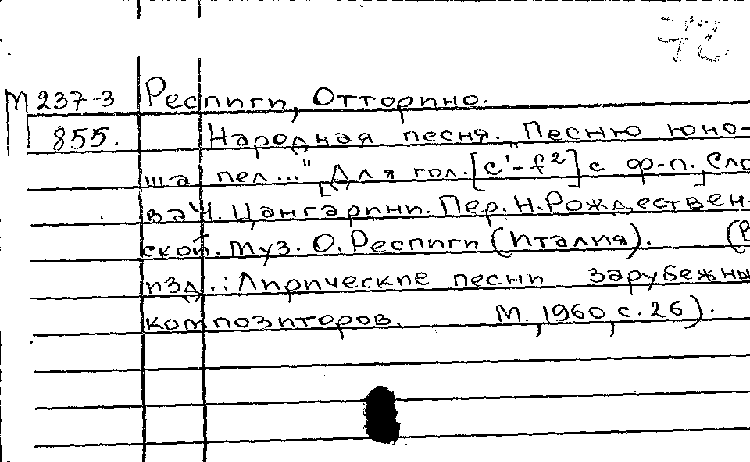 72
М 237-3 Респиги, Отторино.
855. Народная песня. "Песню юно-
ша пел..." [Для гол. [c'-f²] с ф-п. Сло
ва Ч. Цангарини. Пер. Н. Рождествен-
ской. Муз. О. Респиги (Италия). (В
изд.: Лирические песни зарубежны
композиторов. М., 1960, с. 26).